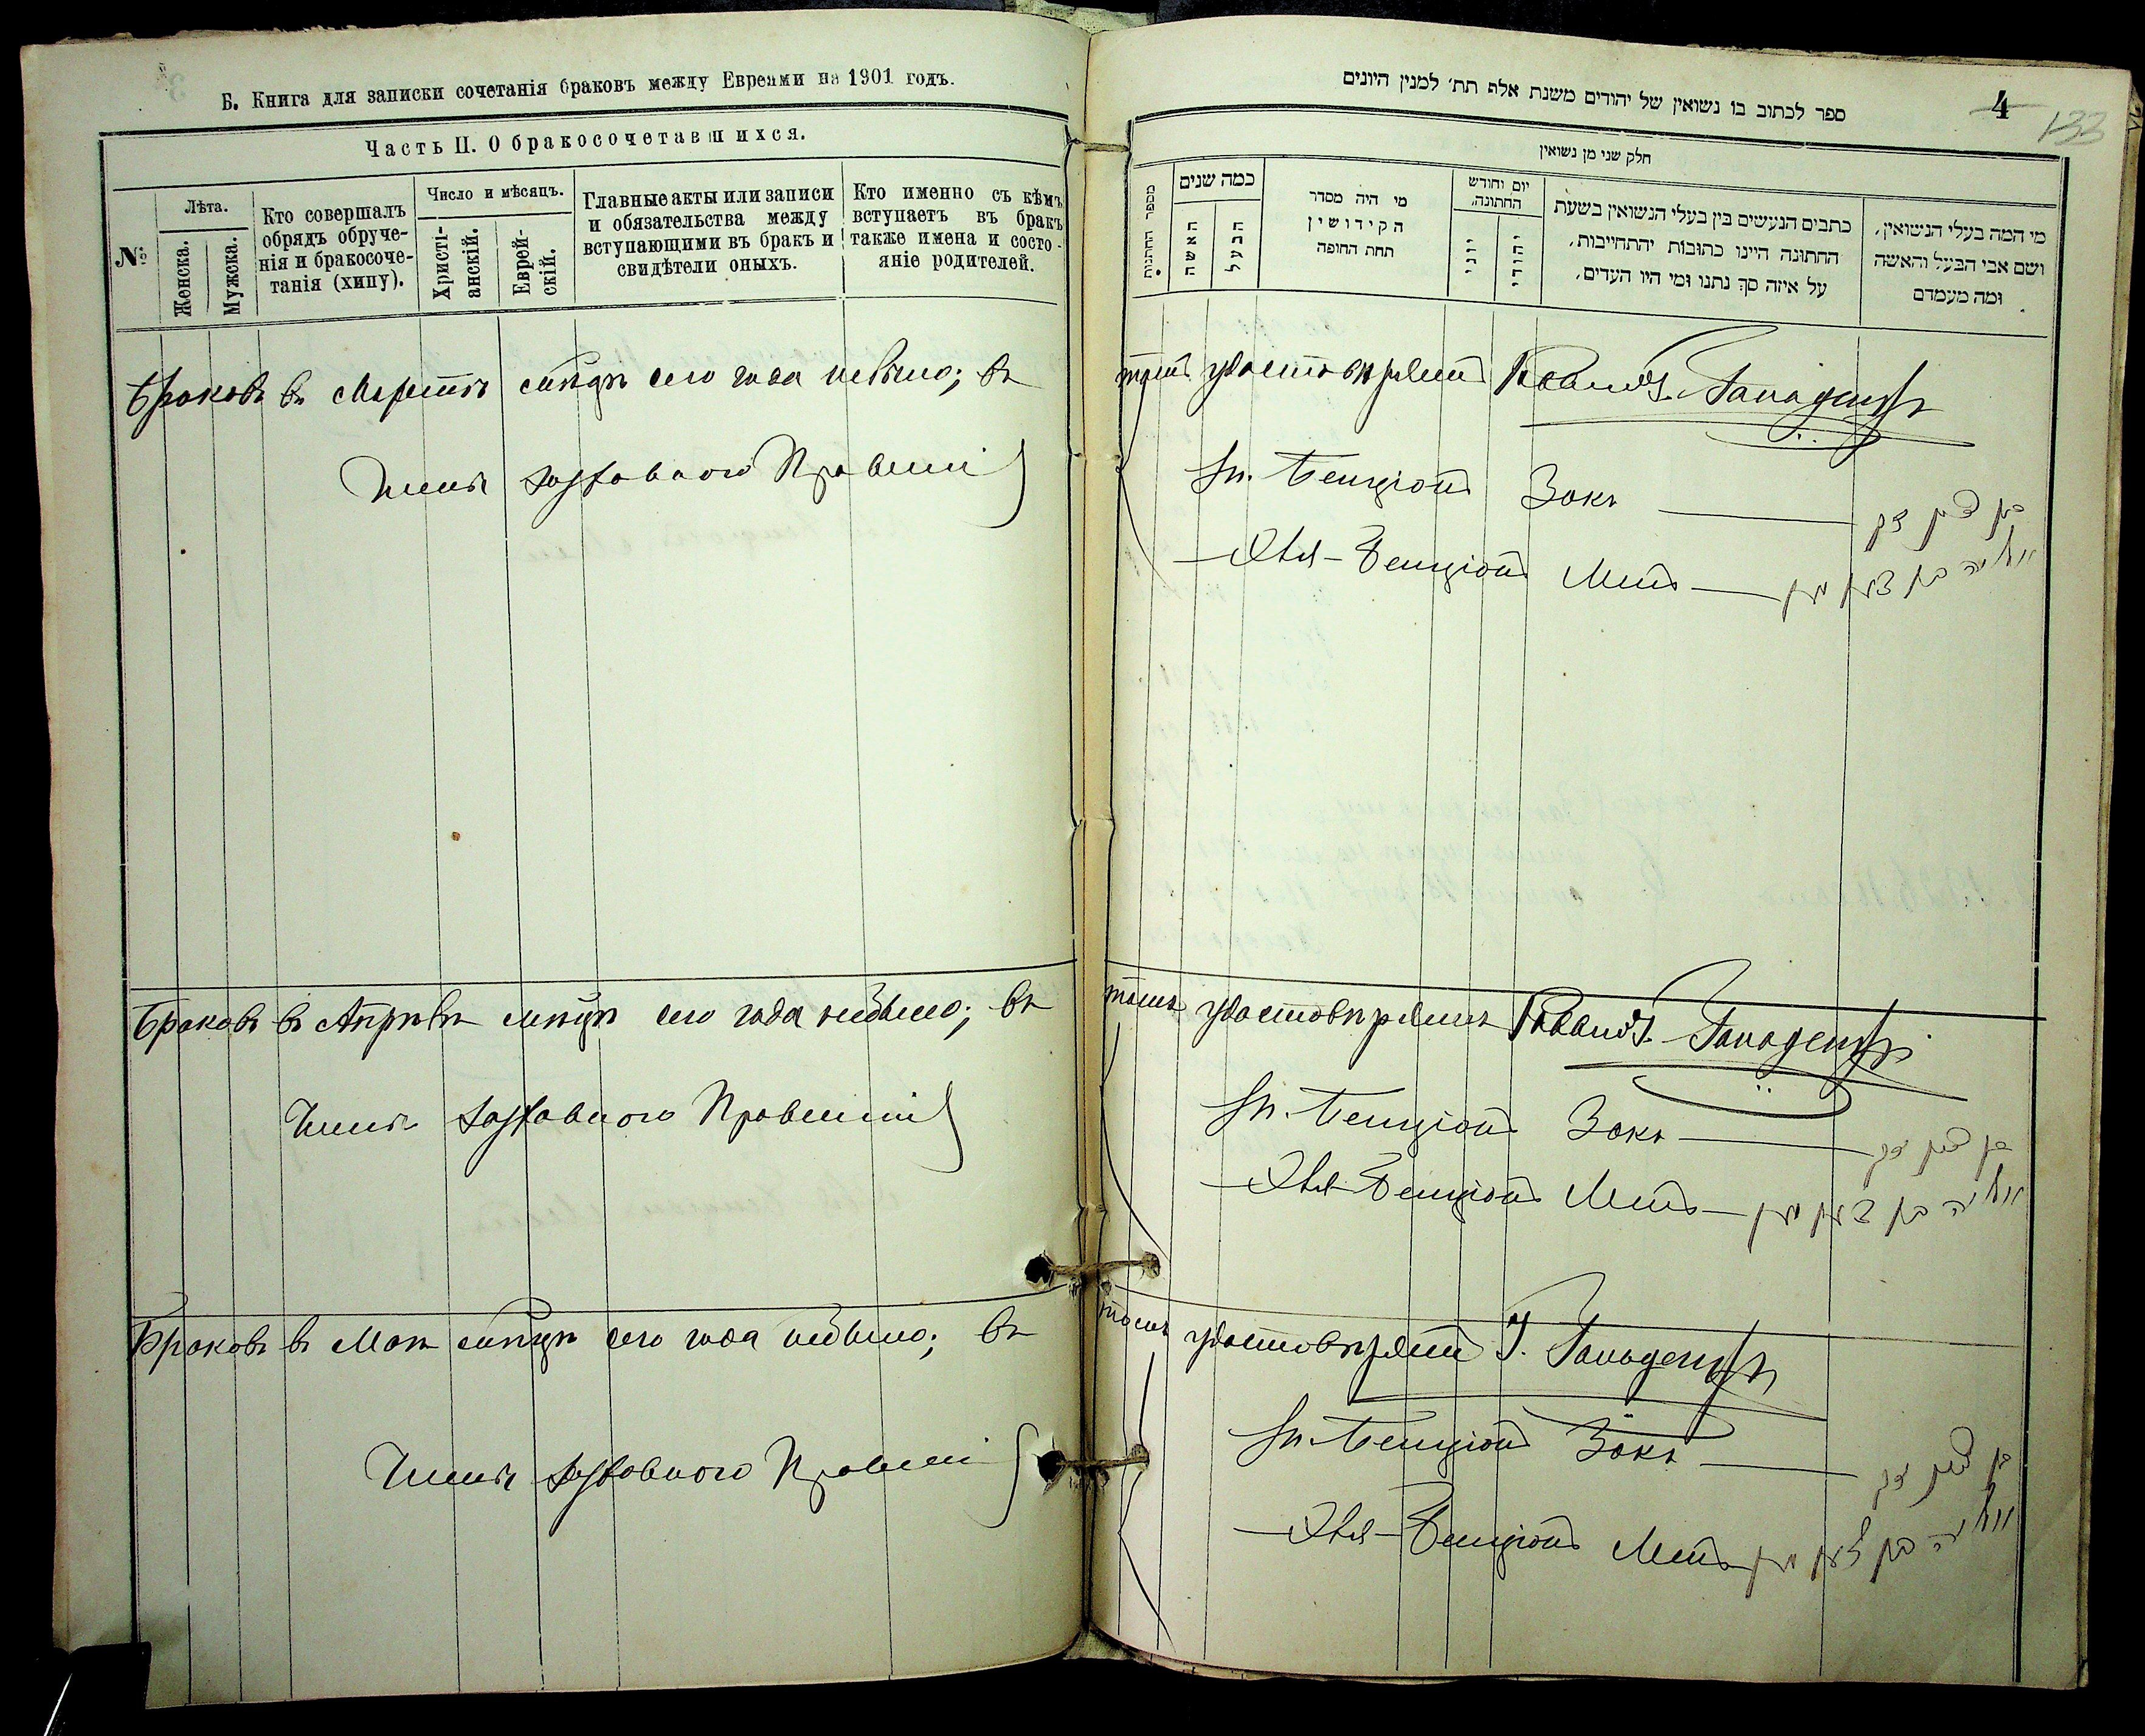 Б. Книга для записки сочетанія браковъ между Евреями на 1901 годъ.
Часть II. О бракосочетавшихся.
№
Лѣта.
Женска.
Мужска.
Кто совершалъ
обрядъ обруче-
нія и бракосоче-
танія (хипу).
Число и мѣсяцъ.
Христі-
анскій.
Еврей-
скій.
Главные акты или записи
и обязательства между
вступающими въ бракъ и
свидѣтели оныхъ.
Кто именно съ кѣмъ
вступаетъ въ бракъ
также имена и состо-
яніе родителей.
Браковъ въ Мартѣ мѣсяцѣ сего года небыло; въ
Члены Духовнаго Правленія
Браковъ въ Апрѣлѣ мѣсяцѣ сего года небыло; въ
Члены Духовнаго Правленія
Браковъ въ Маѣ мѣсяцѣ сего года небыло; въ
Члены Духовнаго Правленія
ספר לכתוב בו נשואין של יהודים משנת אלף תת׳ למנין היונים
4
133
חלק שני מן נשואין
מספר החתנות
כמה שנים
האשה
הבעל
מי היה מסדר
הקידושין
תחת החופה
יום וחודש
החתונה,
יוני
יהודי
כתבים הנעשים בין בעלי הנשואין בשעת
החתונה היינו כתובות יהתחייבות,
על איזה סך נתנו ומי היו העדים,
מי המה בעלי הנשואין,
ושם אבי הבעל והאשה
ומה מעמדם
томъ удостовѣряемъ Раввинъ
Бенціонъ Закъ בן ציון זק
Бенціонъ בן ציון
томъ удостовѣряемъ Раввинъ
Бенціонъ Закъ בן ציון זק
Бенціонъ בן ציון
томъ удостовѣряемъ
Бенціонъ Закъ בן ציון זק
Бенціонъ בן ציון